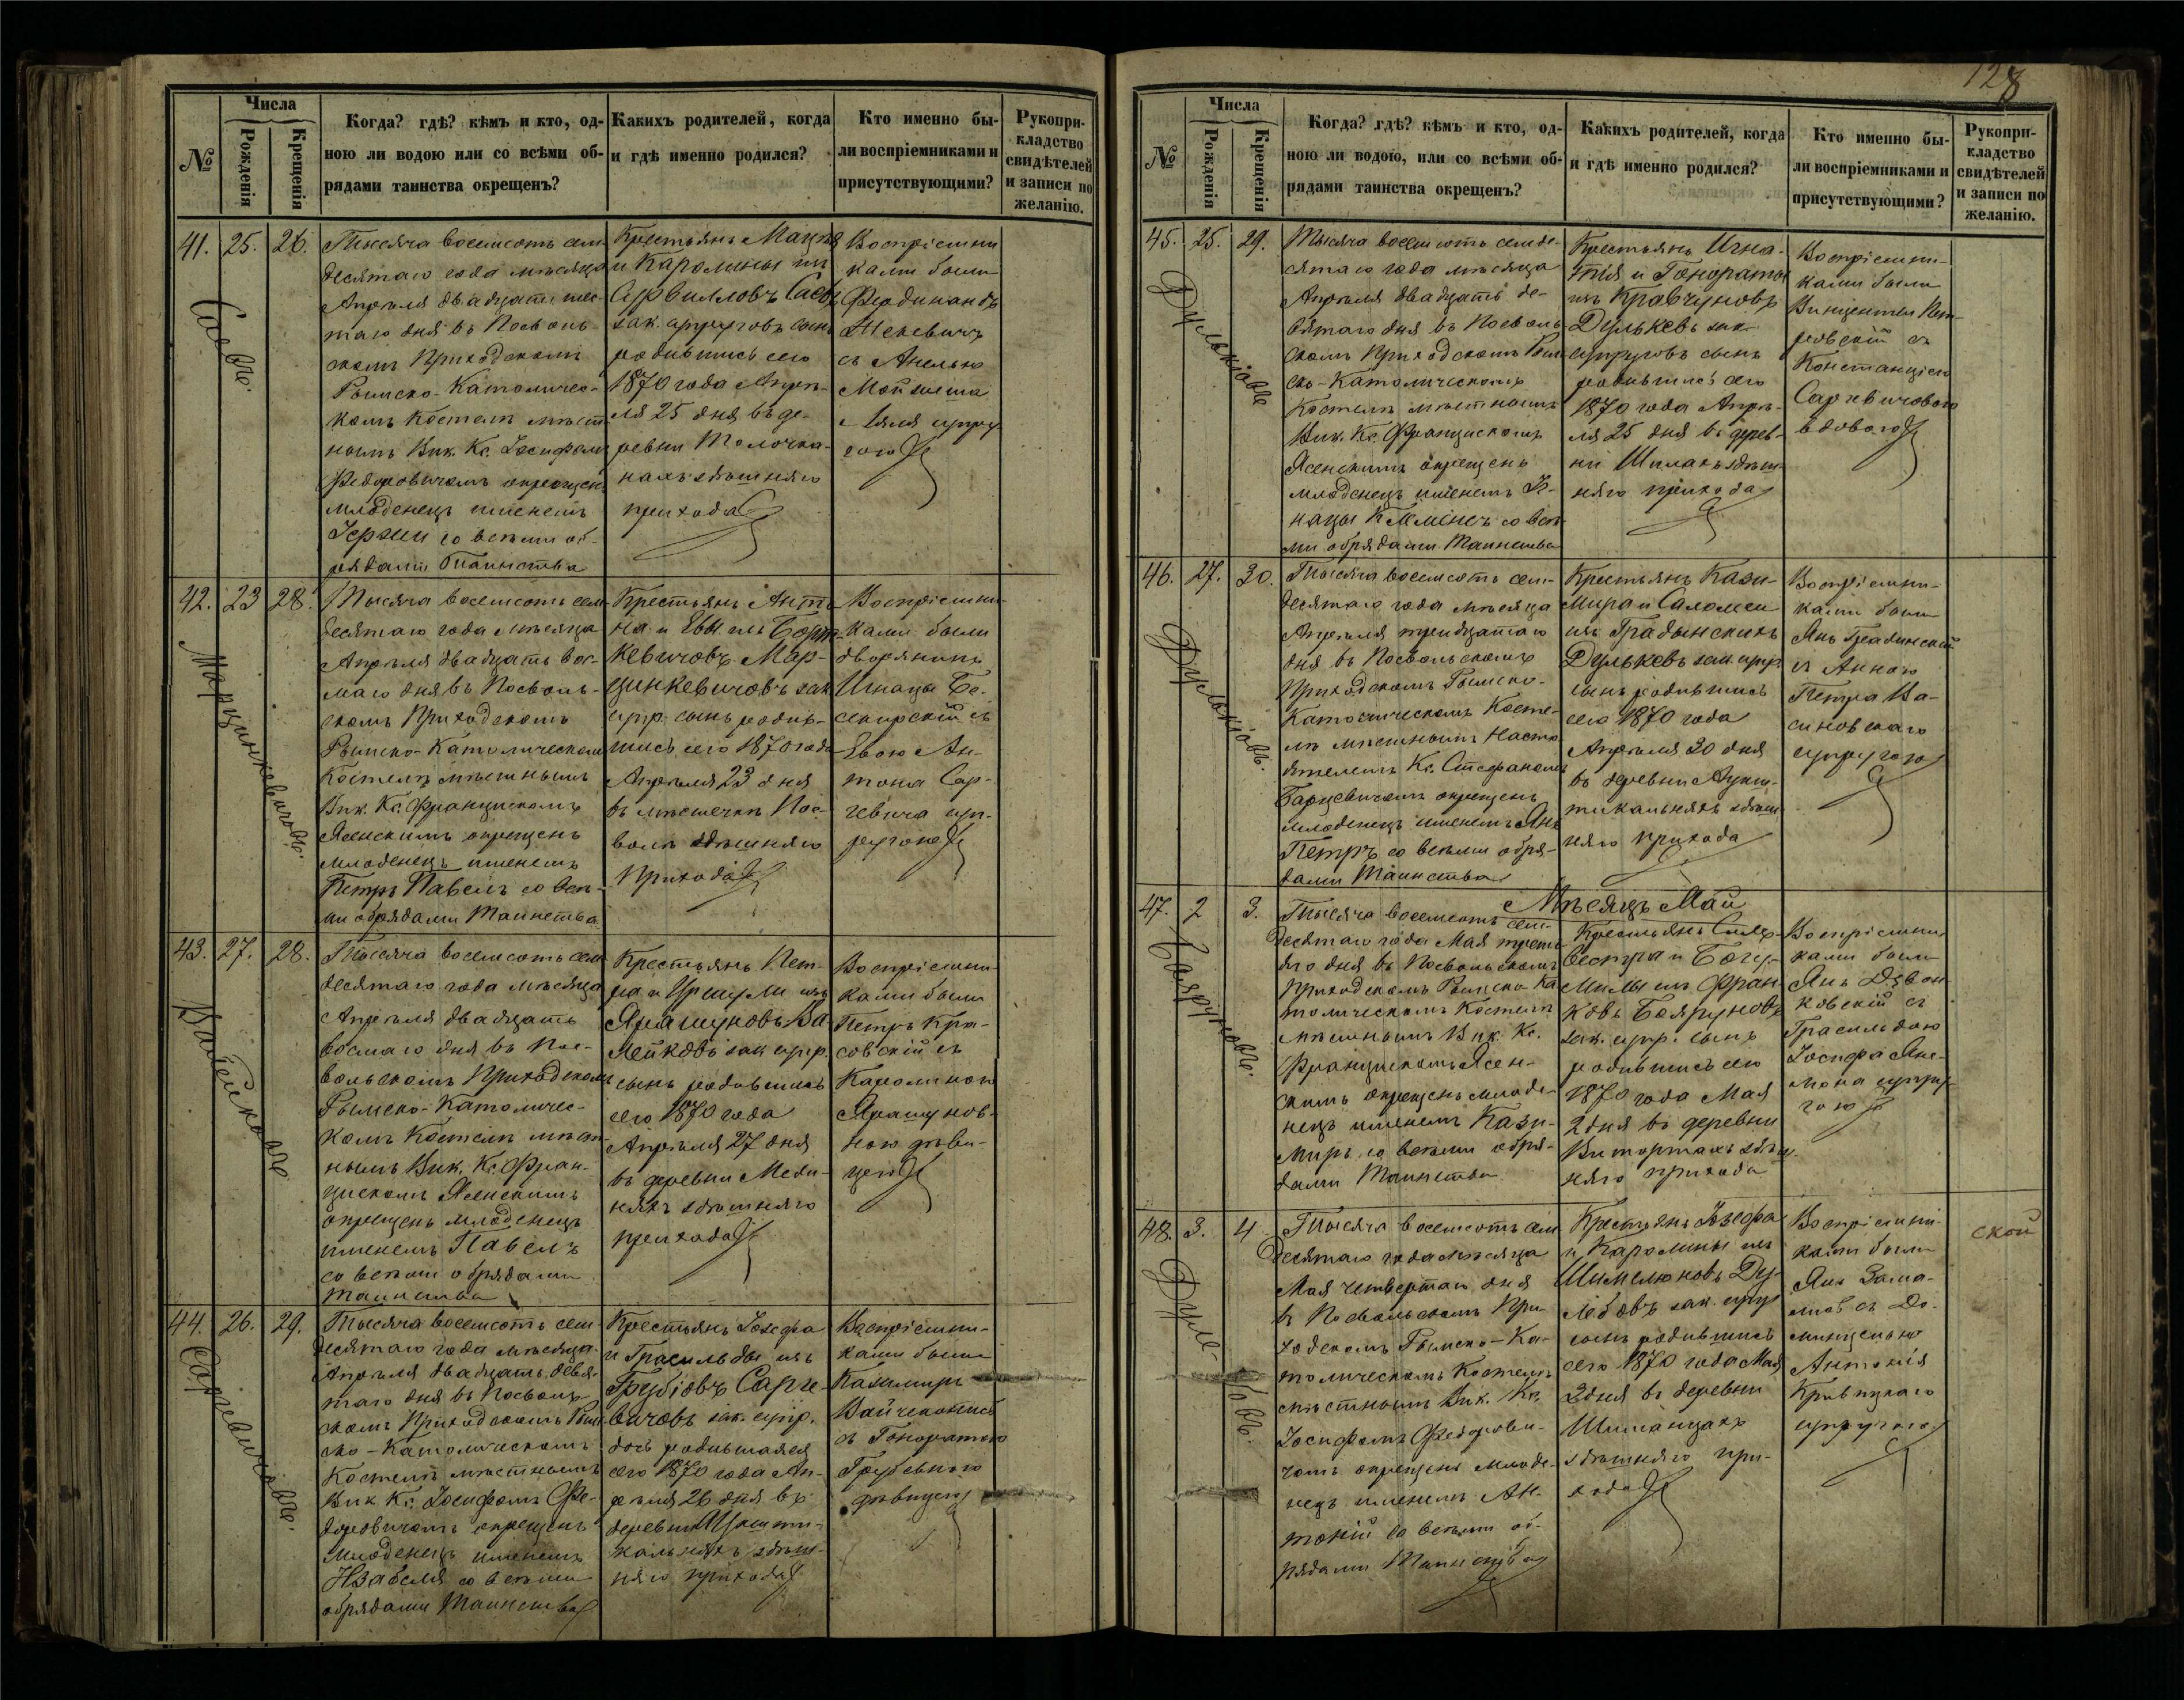 128
Числа
№
Рожденія
Крещенія
Когда? гдѣ? кѣмъ и кто, од-
ною ли водою или со всѣми об-
рядами таинства окрещенъ?
Какихъ родителей, когда
и гдѣ именно родился?
Кто именно бы-
ли воспріемниками и
присутствующими?
Рукопри-
кладство
свидѣтелей
и записи по
желанію.
41. 25. 26.
Тысяча восемсотъ сем
десятаго года мѣсяца
Апрѣля двадцать шес-
таго дня въ Посволь-
скомъ Приходскомъ
Римско-Католичес-
комъ Костелѣ мѣст
нымъ Вик. Кс. Іосифомъ
Федоровичемъ окрещен
младенецъ именемъ
со всѣми об-
рядами Таинства
Крестьянъ
и Каролины изъ
зак. супруговъ сынъ
родившись сего
1870 года Апрѣ-
ля 25 дня въ де-
ревни Толочка-
нахъ здѣшняго
прихода
Воспріемни
ками были
Фердинандъ
съ Анелью
супру
гою
42. 23 28.
Марцинкевичовъ.
Тысяча восемсотъ сем
десятаго года мѣсяца
Апрѣля двадцать вос-
маго дня въ Посволь-
скомъ Приходскомъ
Римско-Католическомъ
Костелѣ мѣстнымъ
Вик. Кс. Францискомъ
Ясенскимъ окрещенъ
младенецъ именемъ
Петръ Павелъ со всѣ-
ми обрядами Таинства
Крестьянъ Анто
на и Евы изъ
кевичовъ Мар-
цинкевичовъ зак
супр. сынъ родив-
шись сего 1870 года
Апрѣля 23 дня
въ мѣстечкѣ Пос-
волѣ здѣшняго
Прихода
Воспріемни-
ками были
дворянинъ
Игнацы Бе-
съ
Евою Ан-
тона Сар-
гевича суп-
ругою
43. 27. 28.
Валейковъ
Тысяча восемсотъ сем
десятаго года мѣсяца
Апрѣля двадцать
восмаго дня въ Пос-
вольскомъ Приходскомъ
Римско-Католичес-
комъ Костелѣ мѣст-
нымъ Вик. Кс. Фран-
цискомъ Ясенскимъ
окрещенъ младенецъ
именемъ Павелъ
со всѣми обрядами
таинства
Крестьянъ Пет-
ра и Уршули изъ
Ярашуновъ Ва
лейковъ зак. супр.
сынъ родившись
сего 1870 года
Апрѣля 27 дня
въ деревни Меди-
няхъ здѣшняго
прихода
Воспріемни-
ками были
Петръ Кра-
совскій съ
Каролиною
Ярашунов-
ною дѣви-
цею
44. 26. 29.
Саргевичовъ.
Тысяча восемсотъ сем-
десятаго года мѣсяца
Апрѣля двадцать девя-
таго дня въ Посволь-
скомъ Приходскомъ Рим
ско-Католическомъ
Костелѣ мѣстнымъ
Вик Кс. Іосифомъ Фе-
доровичемъ окрещенъ
младенецъ именемъ
Изабеля со всѣми
обрядами Таинства
Крестьянъ Іозефа
и Грасильды изъ
Грубіовъ Сарге-
вичовъ зак. супр.
дочь родившаяся
сего 1870 года Ап-
рѣля 26 дня въ
деревни
кальняхъ здѣш-
няго прихода
Воспріемни-
ками были
Казимиръ
съ Гоноратою
дѣвицею
Числа
№
Рожденія
Крещенія
Когда? гдѣ? кѣмъ и кто, од-
ною ли водою, или со всѣми об-
рядами таинства окрещенъ?
Какихъ родителей, когда
и гдѣ именно родился?
Кто именно бы-
ли воспріемниками и
присутствующими?
Рукопри-
кладство
свидѣтелей
и записи по
желанію.
45. 25. 29.
Дулькіовъ
Тысяча восемсотъ семде-
сятаго года мѣсяца
Апрѣля двадцать де-
вятаго дня въ Посволь
скомъ Приходскомъ Рим
ско-Католическомъ
Костелѣ мѣстнымъ
Вик. Кс. Францискомъ
Ясенскимъ окрещенъ
младенецъ именемъ И-
нацы со всѣ-
ми обрядами Таинства
Крестьянъ Игна-
тія и Гонораты
изъ Кравчуновъ
Дулькевъ зак.
супруговъ сынъ
родившись сего
1870 года Апрѣ-
ля 25 дня въ дерев-
ни здѣш-
няго прихода
Воспріемни-
ками были
Винцентій Пет-
ровскій съ
Констанціею
Саргевичовою
вдовою
46. 27. 30.
Дулькіовъ.
Тысяча восемсотъ сем-
десятаго года мѣсяца
Апрѣля тридцатаго
дня въ Посвольскомъ
Приходскомъ Римско-
Католическомъ Косте-
лѣ мѣстнымъ Насто
ятелемъ Кс. Стефаномъ
Барцевичемъ окрещенъ
младенецъ именемъ Янъ
Петръ со всѣми обря-
дами Таинства
Крестьянъ Кази-
мира и Саломеи
изъ Градынскихъ
Дулькевъ зак. супр
сынъ родившись
сего 1870 года
Апрѣля 30 дня
въ деревни
тикальняхъ здѣш
няго прихода
Воспріемни-
ками были
Янъ Градинскій
съ Анною
Петра Ва-
синовскаго
супругою
Мѣсяцъ Май
47. 2 3.
Бояруновъ.
Тысяча восемсотъ сем-
десятаго года Мая треть
яго дня въ Посвольскомъ
Приходскомъ Римско-Ка
толическомъ Костелѣ
мѣстнымъ Вик. Кс.
Францискомъ Ясен-
скимъ окрещенъ младе-
нецъ именемъ Кази-
миръ со всѣми обря-
дами Таинства
Крестьянъ Силь-
вестра и Богу-
милы изъ Фран-
ковъ Бояруновъ
зак. супр. сынъ
родившись сего
1870 года Мая
2 дня въ деревни
здѣш
няго прихода
Воспріемни
ками были
Янъ
ковскій съ
Грасильдою
Іосифа
супру-
гою
48. 3. 4
Дуле-
бовъ.
Тысяча восемсотъ сем
десятаго года мѣсяца
Мая четвертаго дня
въ Посвольскомъ При-
ходскомъ Римско-Ка-
толическомъ Костелѣ
мѣстнымъ Вик. Кс.
Іосифомъ Федорови-
чемъ окрещенъ младе-
нецъ именемъ Ан-
тоній со всѣми об-
рядами Таинства
Крестьянъ Іозефа
и Каролины изъ
Шимелюновъ Ду-
лебовъ зак. супр
сынъ родившись
сего 1870 года Мая
3 дня въ деревни
Шиманцахъ
здѣшняго при-
хода
Воспріемни-
ками были
Янъ
съ До-
минцелью
Антонія
супругою
ской